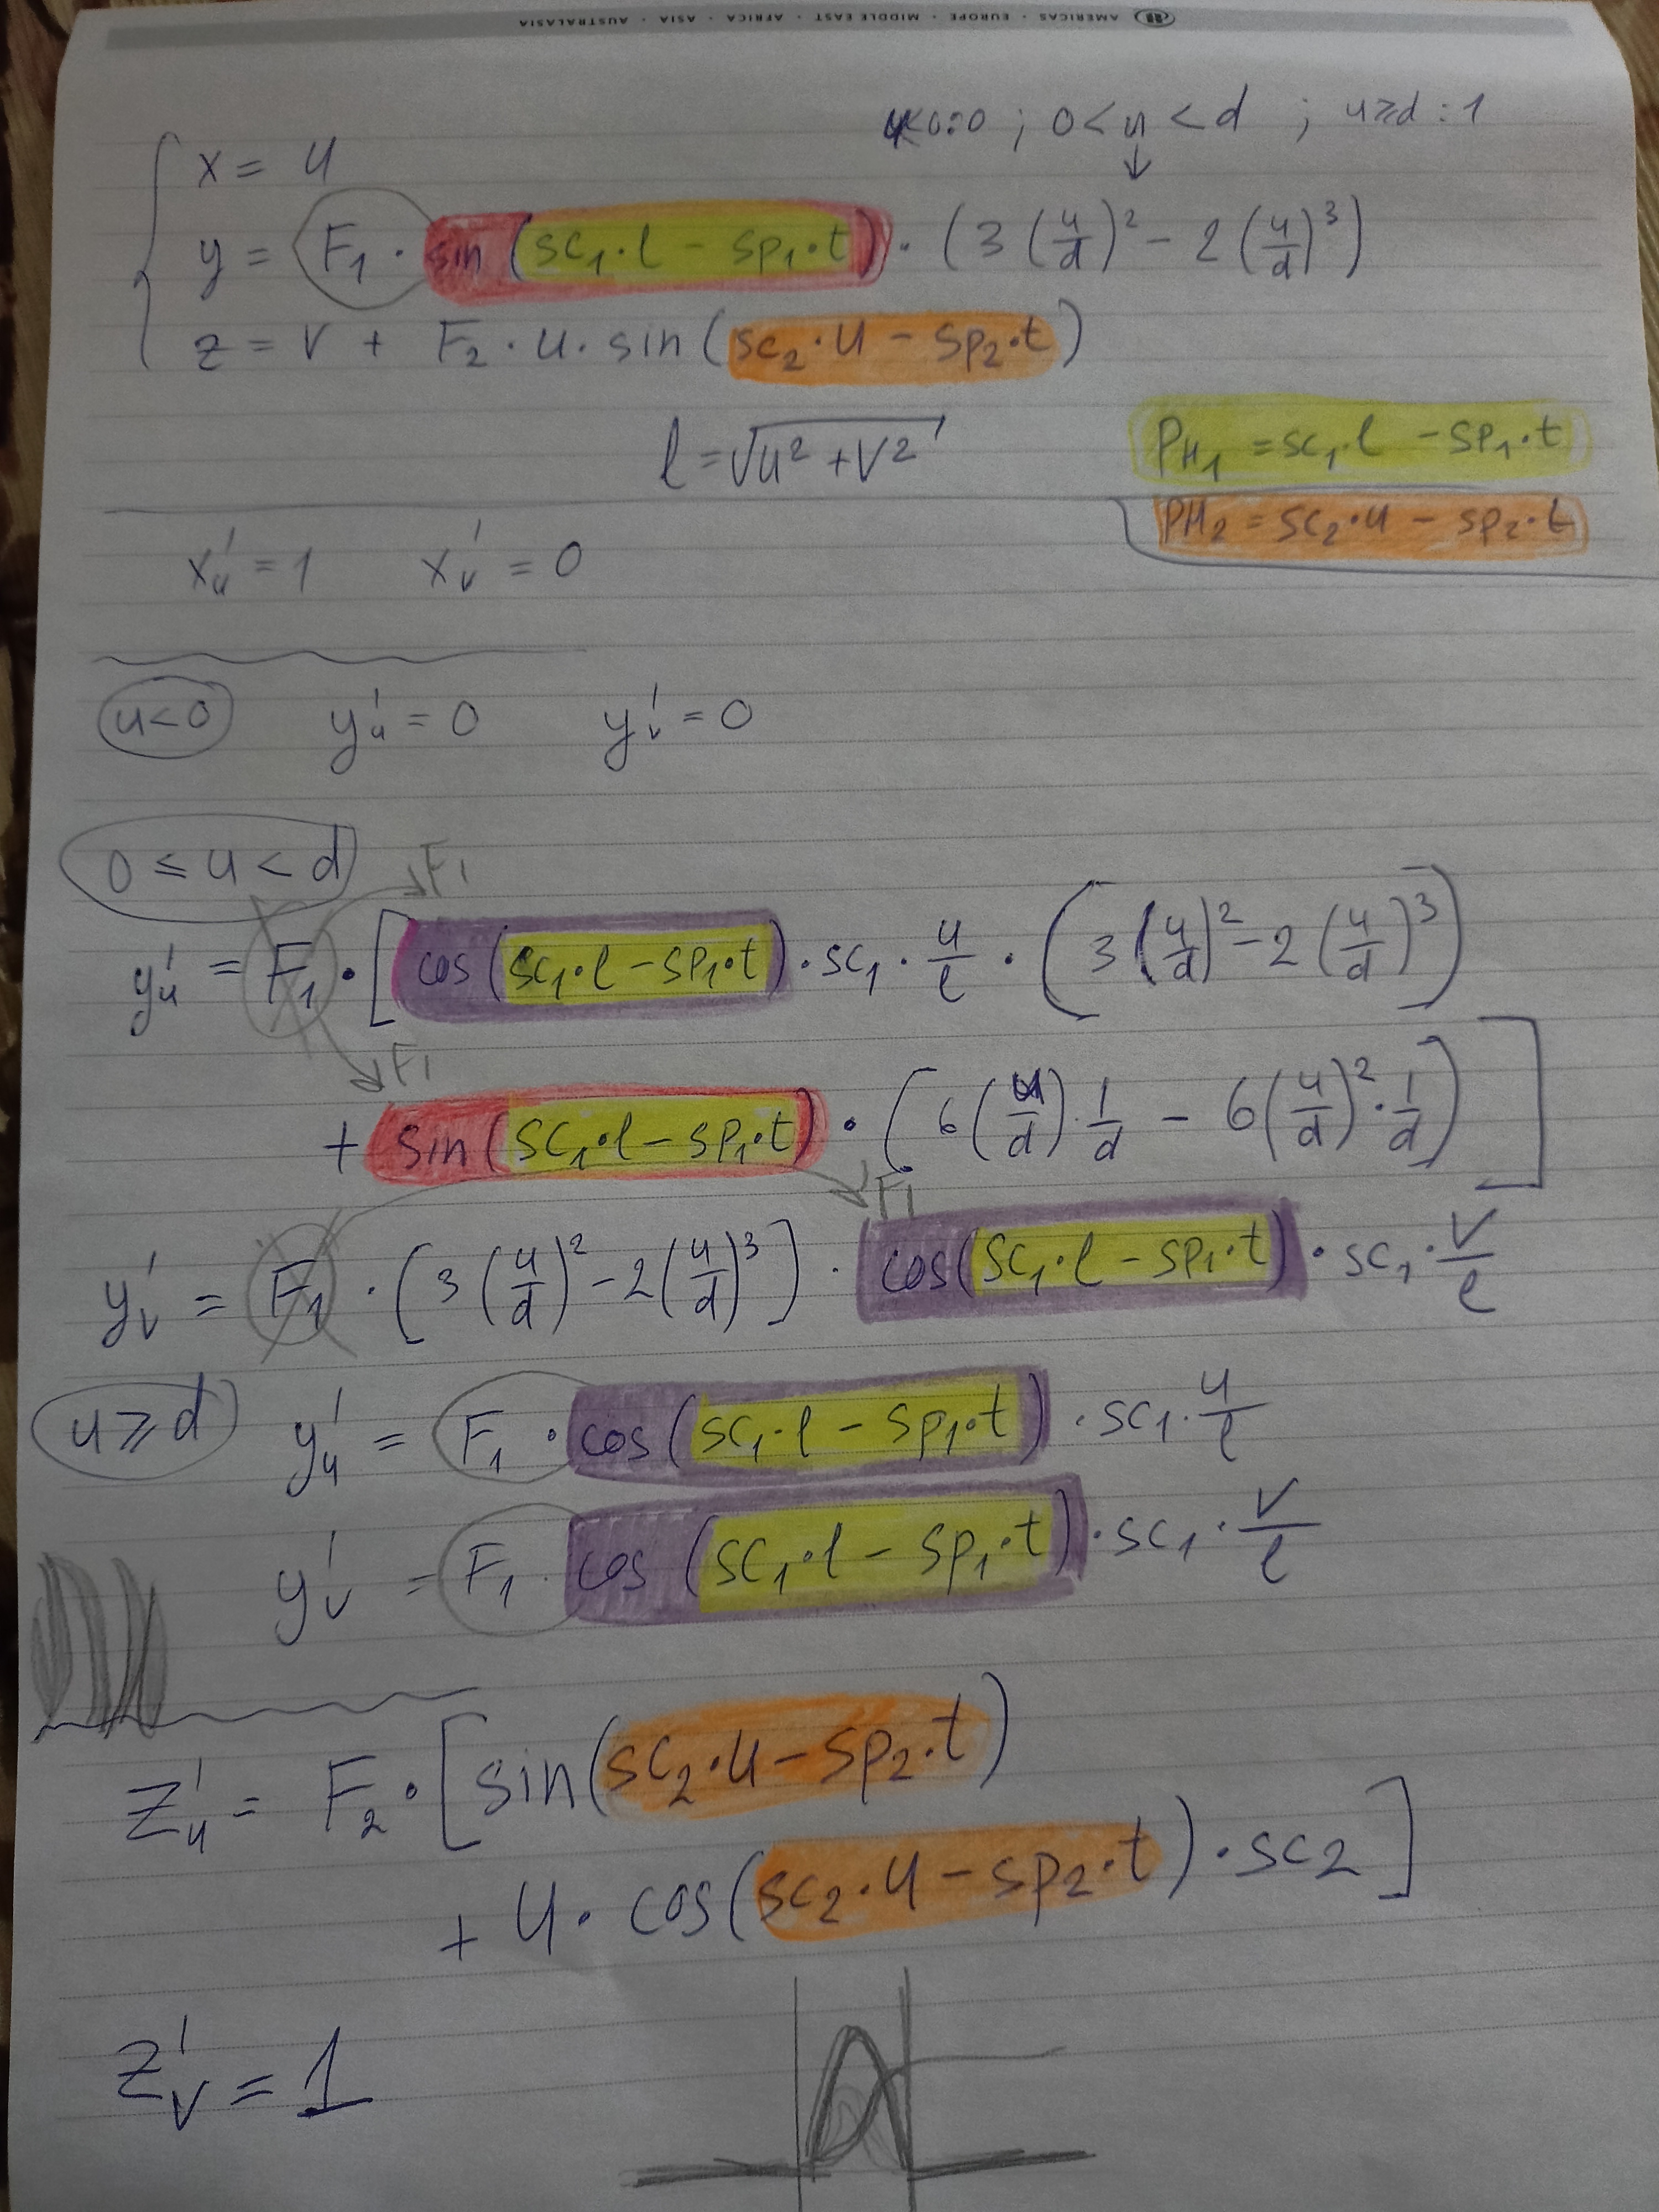 AMERICAS · EUROPE · MIDDLE EAST · AFRICA · ASIA · AUSTRALASIA
u<0:0 ; 0<u<d ; u≥d : 1
↓
x = u
y = F₁ · sin (sc₁·l − sp₁·t) · (3(u/d)² − 2(u/d)³)
z = v + F₂ · u · sin (sc₂·u − sp₂·t)
l = √u² + v²
PH₁ = sc₁·l − sp₁·t
PH₂ = sc₂·u − sp₂·t
x'ᵤ = 1 x'ᵥ = 0
u<0 y'ᵤ = 0 y'ᵥ = 0
0 ≤ u < d
F₁
y'ᵤ = F₁ · [cos (sc₁·l − sp₁·t) · sc₁ · u/l · (3(u/d)² − 2(u/d)³)
F₁
+ sin (sc₁·l − sp₁·t) · (6(u/d)·1/d − 6(u/d)²·1/d)]
F₁
y'ᵥ = F₁ · (3(u/d)² − 2(u/d)³) · cos(sc₁·l − sp₁·t) · sc₁ · v/l
u ≥ d y'ᵤ = F₁ · cos (sc₁·l − sp₁·t) · sc₁ · u/l
y'ᵥ = F₁ · cos (sc₁·l − sp₁·t) · sc₁ · v/l
z'ᵤ = F₂ · [sin (sc₂·u − sp₂·t)
+ u · cos (sc₂·u − sp₂·t) · sc₂]
z'ᵥ = 1